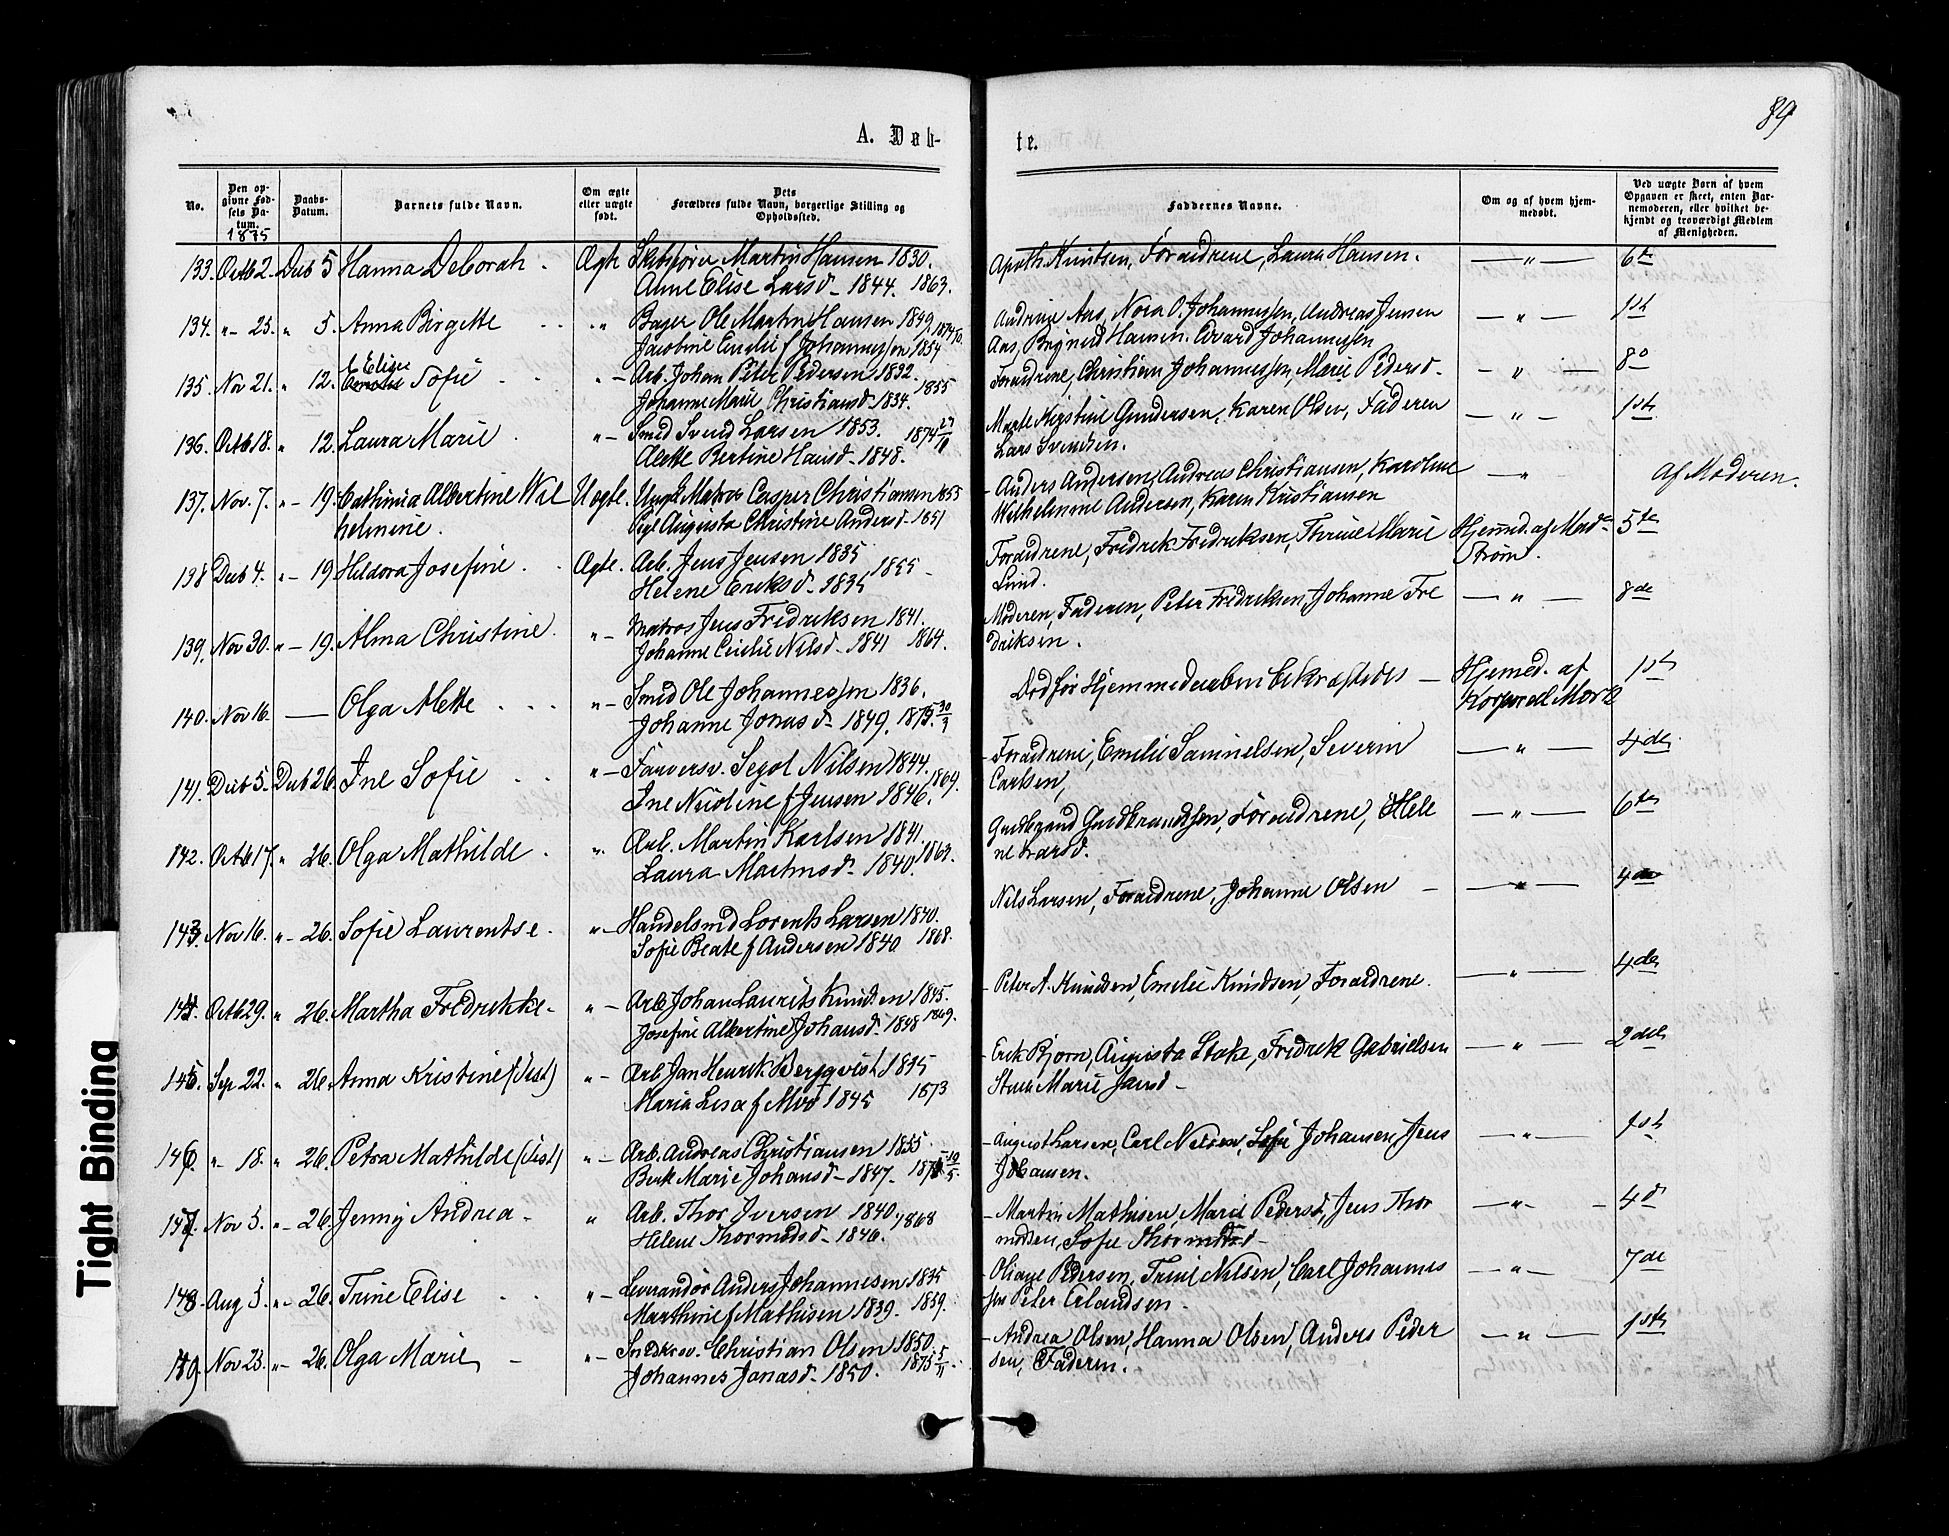 89
A. Døb-
te.
No.
Den op-
givne Fød-
sels Da-
tum.
1875
Daabs-
Datum.
Barnets fulde Navn.
Om ægte
eller uægte
født.
Dets
Forældres fulde Navn, borgerlige Stilling og
Opholdssted.
Faddernes Navne.
Om og af hvem hjem-
medøbt.
Ved uægte Børn af hvem
Opgaven er skeet, enten Bar-
nemoderen, eller hvilket be-
kjendt og troværdigt Medlem
af Menigheden.
133. Octb 2. Deb 5 Hanna Deborah. Ægte Skibsfører Martin Hansen 1830. Apoth. Knutsen, Forældrene, Laura Hansen. — " — 6te
Anne Elise Larsd. 1844. 1863.
134. " - 25. " 5. Anna Birgette " Bager Ole Martin Hansen 1849 Andrine Aas, Nora O. Johannessen, Andreas Jensen — " — 1ste
Jacobine Emilie f Johannessen 1854 Aas, Hansen. Edvard Johannessen
135. Nov 21. " 12. Elise Sofie " - Arb. Johan Peter Pedersen 1832. 1855 Forældrene, Christian Johannessen, Marie Pedersd. — " — 8de
Johanne Marie Christiansd. 1834.
136. Octb 18. " 12. Laura Marie " - Smed Svend Larsen 1853. 1874 Marte Kirstine Gundersen, Karen Olsen, Faderen — " — 1ste
Bertine Hansd. 1848. Lars Svendsen.
137. Nov. 7. " - 19. Cathinia Albertine Wil Uægte. Ungk. Matros Casper Christiansen 1855 Anders Andersen, Andreas Christiansen, Karoline — " af Moderen.
helmine. Pige Augusta Christine Andersd. 1851 Wilhelmine Andersen, Karen Kristiansen
138 Deb 4. " - 19 Hildora Josefine. Ægte. Arb. Jens Jensen 1835 1855 - Forældrene, Fredrik Fredriksen, Therine Marie Hjemmed. af Mad. 5te
Helene Eriksd. 1835 Lund. Strøm.
139. Nov 30. " - 19. Alma Christine. " - Matros Jens Fredriksen 1841. Moderen, Faderen, Peter Fredriksen, Johanne Fre — " — 8de
Johanne Cicilie Nilsd. 1841 1864. driksen.
140. Nov 16. — Olga Alette " - Smed Ole Johannessen 1836. Død før Hjemmedaaben bekræftedes — Hjemed. af 1ste
Johanne Jonasd. 1849. 1875 30/3 Korporal Mork
141. Deb 5. Deb 26. Ine Sofie " - Farversv. Segol Nilsen 1844. 1869. Forældrene, Emilie Samuelsen, Severin — " — 4de
Ine f Jensen 1846. Carlsen,
142. Octb 17. " 26. Olga Mathilde. " Arb. Martin Karlsen 1841. 1863. Gudbrand Gudbrandsen, Forældrene, Hele — " — 6te
Laura Martinsd. 1840. ne Larsd.
143. Nov 16. " - 26. Sofie Laurentse. " - Handelsmd Lorents Larsen 1840. Nils Larsen, Forældrene, Johanne Olsen — " — 4de
Sofie Beate f Andersen 1840 1868.
144. Octb 29. " 26. Martha Fredrikke " - Arb. Johan Laurits Knudsen 1845. Peter A. Knudsen, Emilie Knudsen, Forældrene. — " — 4de
Josefine Albertine Johansd. 1848 1869.
145. Sep. 22. " 26. Anna Kristine (Dist) " - Arb. Jan Henrik Bergqvist 1835 Erik Bjørn, Augusta Stake, Fredrik Gabrielsen — " — 2den
Maria Lisa f Moo 1845 1873 Marie Jansd.
146. " - 18. " 26. Petra Mathilde (Dist) " - Arb. Andreas Christiansen 1855. August Larsen, Carl Nilsen, Sofie Johansen, Jens — " — 1ste
Marie Johansd. 1847. Johansen.
147. Nov 5. " - 26. Jenny Andrea " Arb. Thor Iversen 1840 1868 Martin Mathisen, Marie Pedersd, Jens Thor — " — 4d
Helene Thormodsd. 1846. modsen, Sofie Thormodsd.
148. Aug 5. " - 26. Trine Elise " - Leverandør Anders Johannesen 1835 Pedersen, Trine Nilsen, Carl Johannes — " — 7de
Marthine f Mathisen 1839. 1859. sen Peter Erlandsen.
149. Nov 23. " - 26. Olga Marie " - Snedkersv. Christian Olsen 1850. Andrea Olsen, Hanna Olsen, Anders Peder — " — 1ste
Johannes Jonasd. 1850. 1875 5/11 sen, Faderen.
Tight Binding